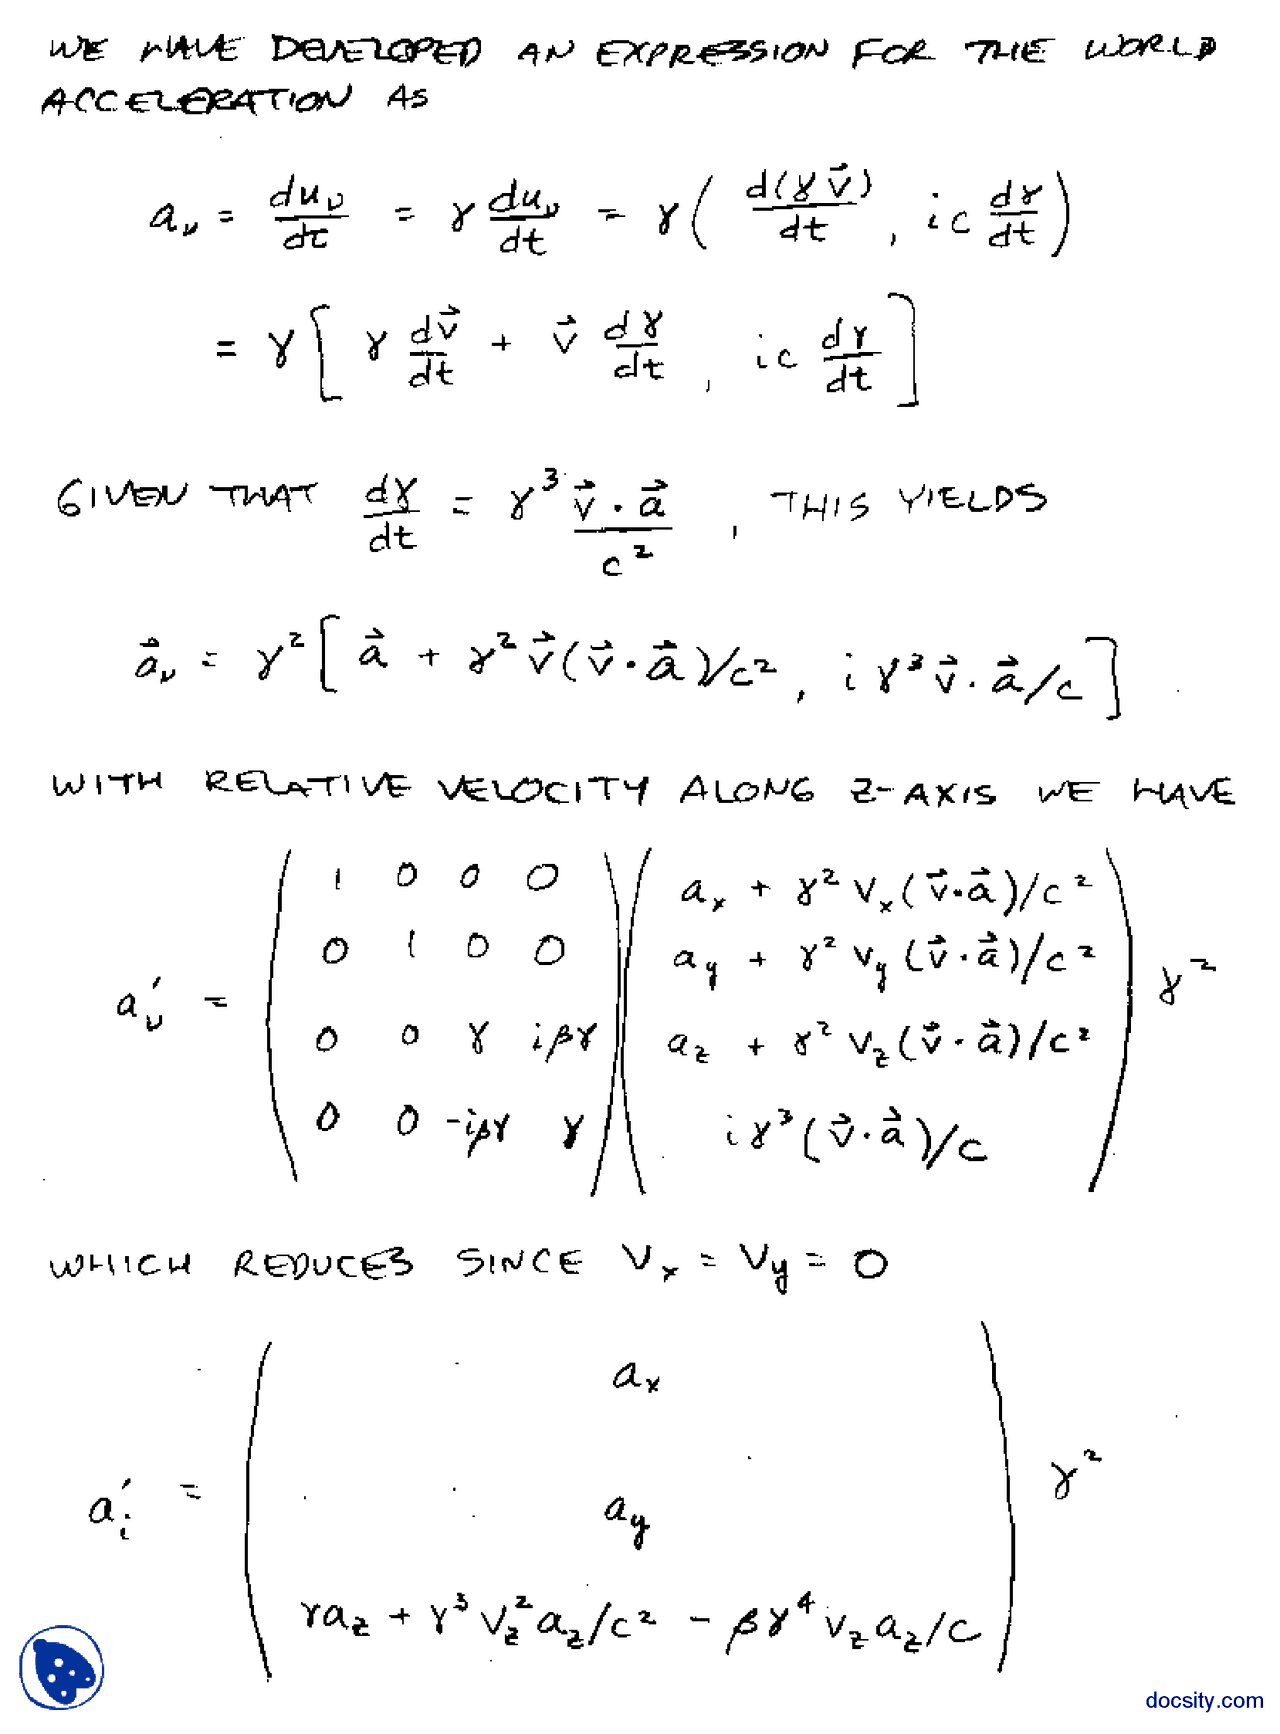 WE HAVE DEVELOPED AN EXPRESSION FOR THE WORLD
ACCELERATION AS
a_ν = du_ν/dτ = γ du_ν/dt = γ ( d(γv⃗)/dt , ic dγ/dt )
= γ [ γ dv⃗/dt + v⃗ dγ/dt , ic dγ/dt ]
GIVEN THAT dγ/dt = γ³ v⃗·a⃗/c² , THIS YIELDS
a⃗_ν = γ² [ a⃗ + γ² v⃗(v⃗·a⃗)/c² , iγ³ v⃗·a⃗/c ]
WITH RELATIVE VELOCITY ALONG Z-AXIS WE HAVE
a'_ν = ( 1 0 0 0 ; 0 1 0 0 ; 0 0 γ iβγ ; 0 0 -iβγ γ ) ( a_x + γ² v_x(v⃗·a⃗)/c² ; a_y + γ² v_y(v⃗·a⃗)/c² ; a_z + γ² v_z(v⃗·a⃗)/c² ; iγ³(v⃗·a⃗)/c ) γ²
WHICH REDUCES SINCE v_x = v_y = 0
a'_i = ( a_x ; a_y ; γa_z + γ³ v_z² a_z/c² - βγ⁴ v_z a_z/c ) γ²
docsity.com